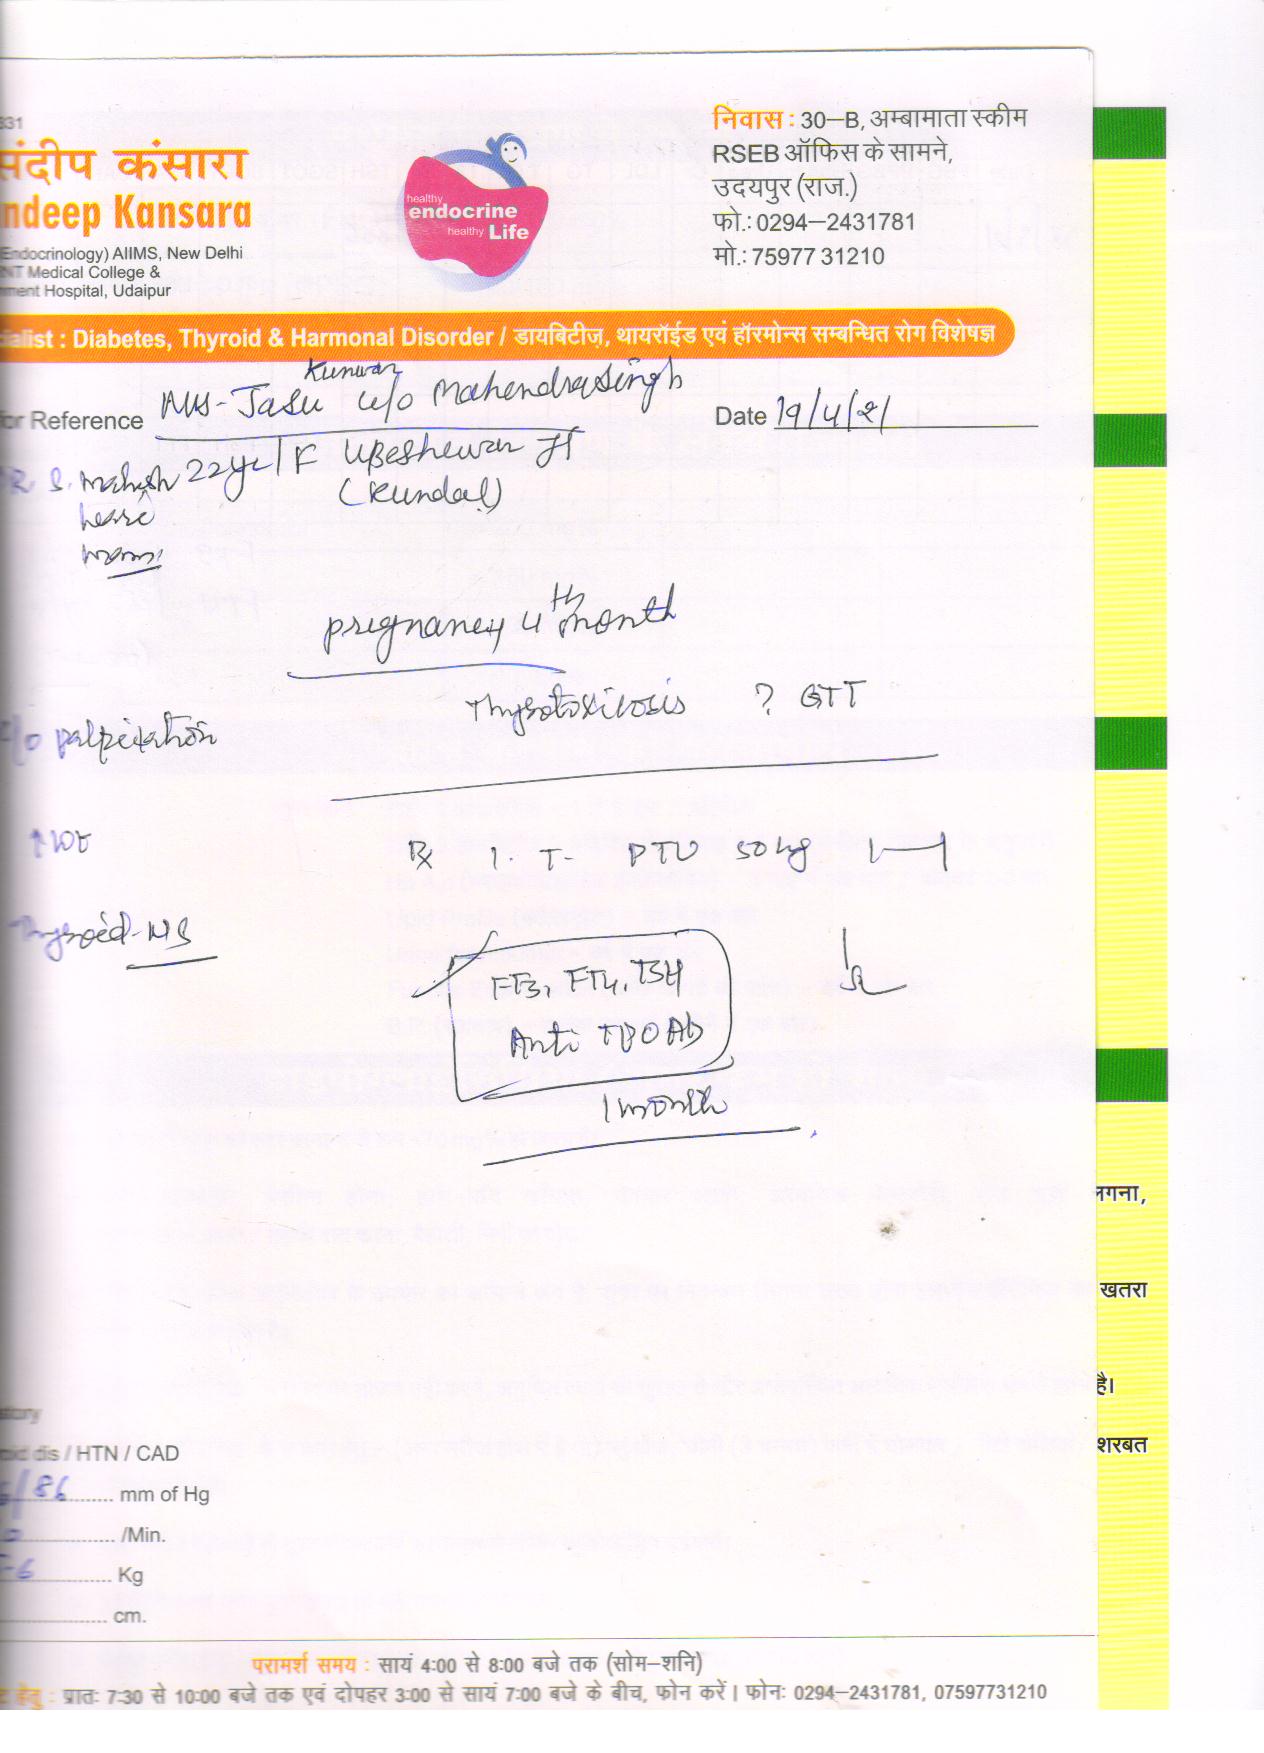 331
संदीप कंसारा
ndeep Kansara
Endocrinology) AIIMS, New Delhi
RNT Medical College &
nment Hospital, Udaipur
healthy
endocrine
healthy Life
निवास : 30–B, अम्बामाता स्कीम
RSEB ऑफिस के सामने,
उदयपुर (राज.)
फो.: 0294–2431781
मो.: 75977 31210
cialist : Diabetes, Thyroid & Harmonal Disorder / डायबिटीज़, थायरॉईड एवं हॉरमोन्स सम्बन्धित रोग विशेषज्ञ
Kunwar
for Reference Mrs- Jasu w/o Mahendrasingh
Date 19/4/21
DR. S. Mahesh 22yr/F Ubeshewar Ji
(Kundal)
pregnancy 4th month
Thyrotoxicosis ? GTT
c/o palpitation
↑ wt
Rx 1. T- PTU 50 mg 1—1
Thyroid-NS
FT3, FT4, TSH
Anti TPO Ab
1 month
लगना,
खतरा
है।
शरबत
story
oid dis / HTN / CAD
6/86 mm of Hg
0 /Min.
-6 Kg
cm.
परामर्श समय : सायं 4:00 से 8:00 बजे तक (सोम–शनि)
हेतु : प्रातः 7:30 से 10:00 बजे तक एवं दोपहर 3:00 से सायं 7:00 बजे के बीच, फोन करें। फोनः 0294–2431781, 07597731210